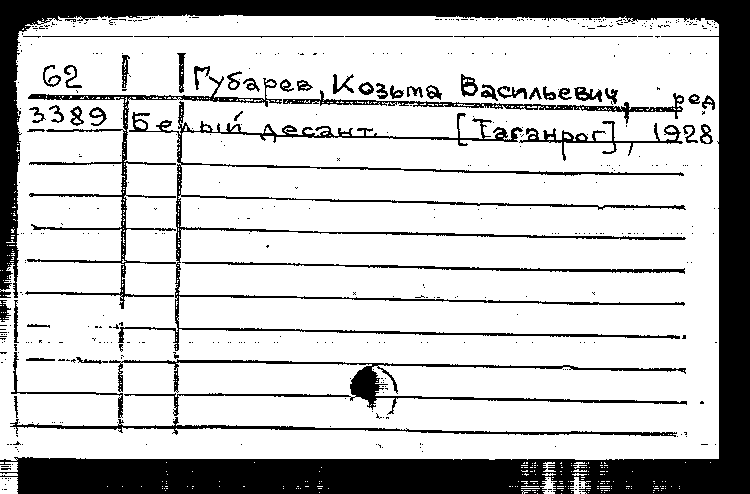 62 Губарев, Козьма Васильевич, ред
3389 Белый десант [Таганрог], 1928